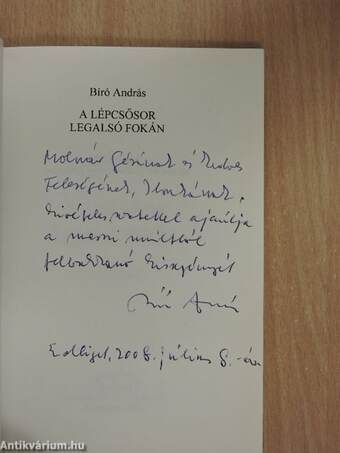 Bíró András
A LÉPCSŐSOR
LEGALSÓ FOKÁN
Molnár Gézának és Kedves
Feleségének, Ilonkának,
szeretettel ajánlja
a messzi múltból
felbukkanó
Bíró András
Erdliget, 2008. július 8.-án
Antikvárium.hu